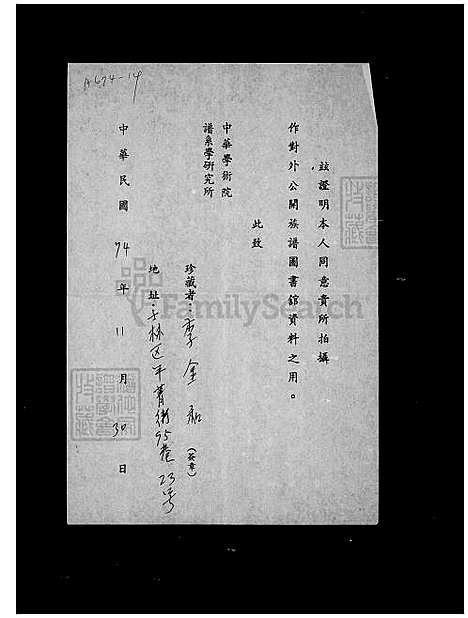 A674-14
茲證明本人同意貴所拍攝
作對外公開族譜圖書館資料之用。
此致
中華學術院
譜系學研究所
珍藏者：李金(簽章)
地址：士林区平菁街95巷23号
中華民國74年11月30日
FamilySearch